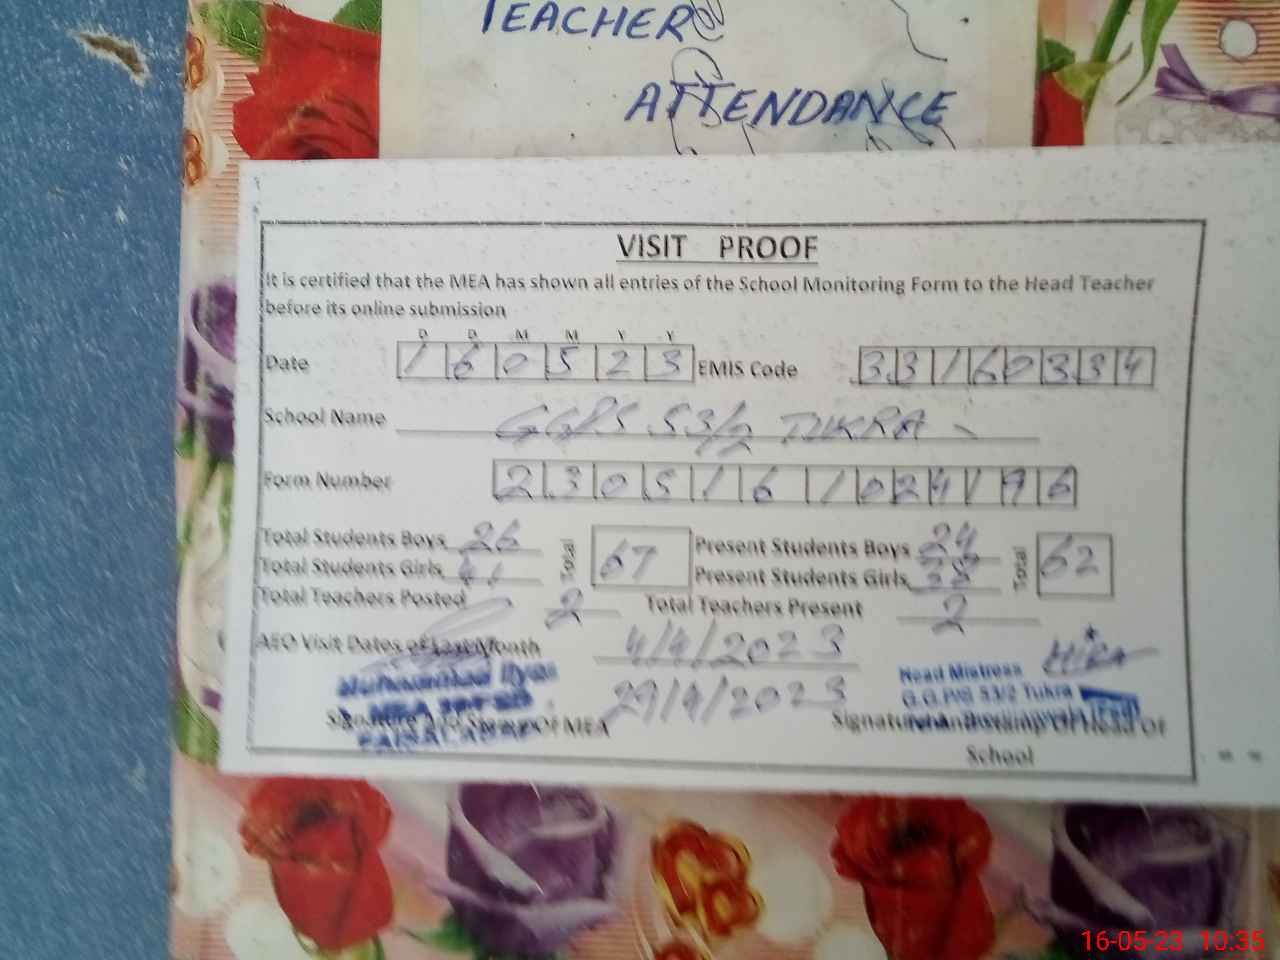 TEACHER
ATTENDANCE
VISIT PROOF
It is certified that the MEA has shown all entries of the School Monitoring Form to the Head Teacher
before its online submission
D D M M Y Y
Date 1 6 0 5 2 3 EMIS Code 3 3 1 6 0 3 3 4
School Name GGPS 53/2 TUKRA
Form Number 2 3 0 5 1 6 1 0 2 4 1 9 6
Total Students Boys 26 Total 67 Present Students Boys 24 Total 62
Total Students Girls 41 Present Students Girls 38
Total Teachers Posted 2 Total Teachers Present 2
AEO Visit Dates of Last Month 4/4/2023
29/4/2023
Muhammad Ilyas
MEA
FAISALABAD
Signature And Stamp Of MEA
HIRA
Head Mistress
G.G.P/S 53/2 Tukra
Signature And Stamp Of Head Of
School
16-05-23 10:35